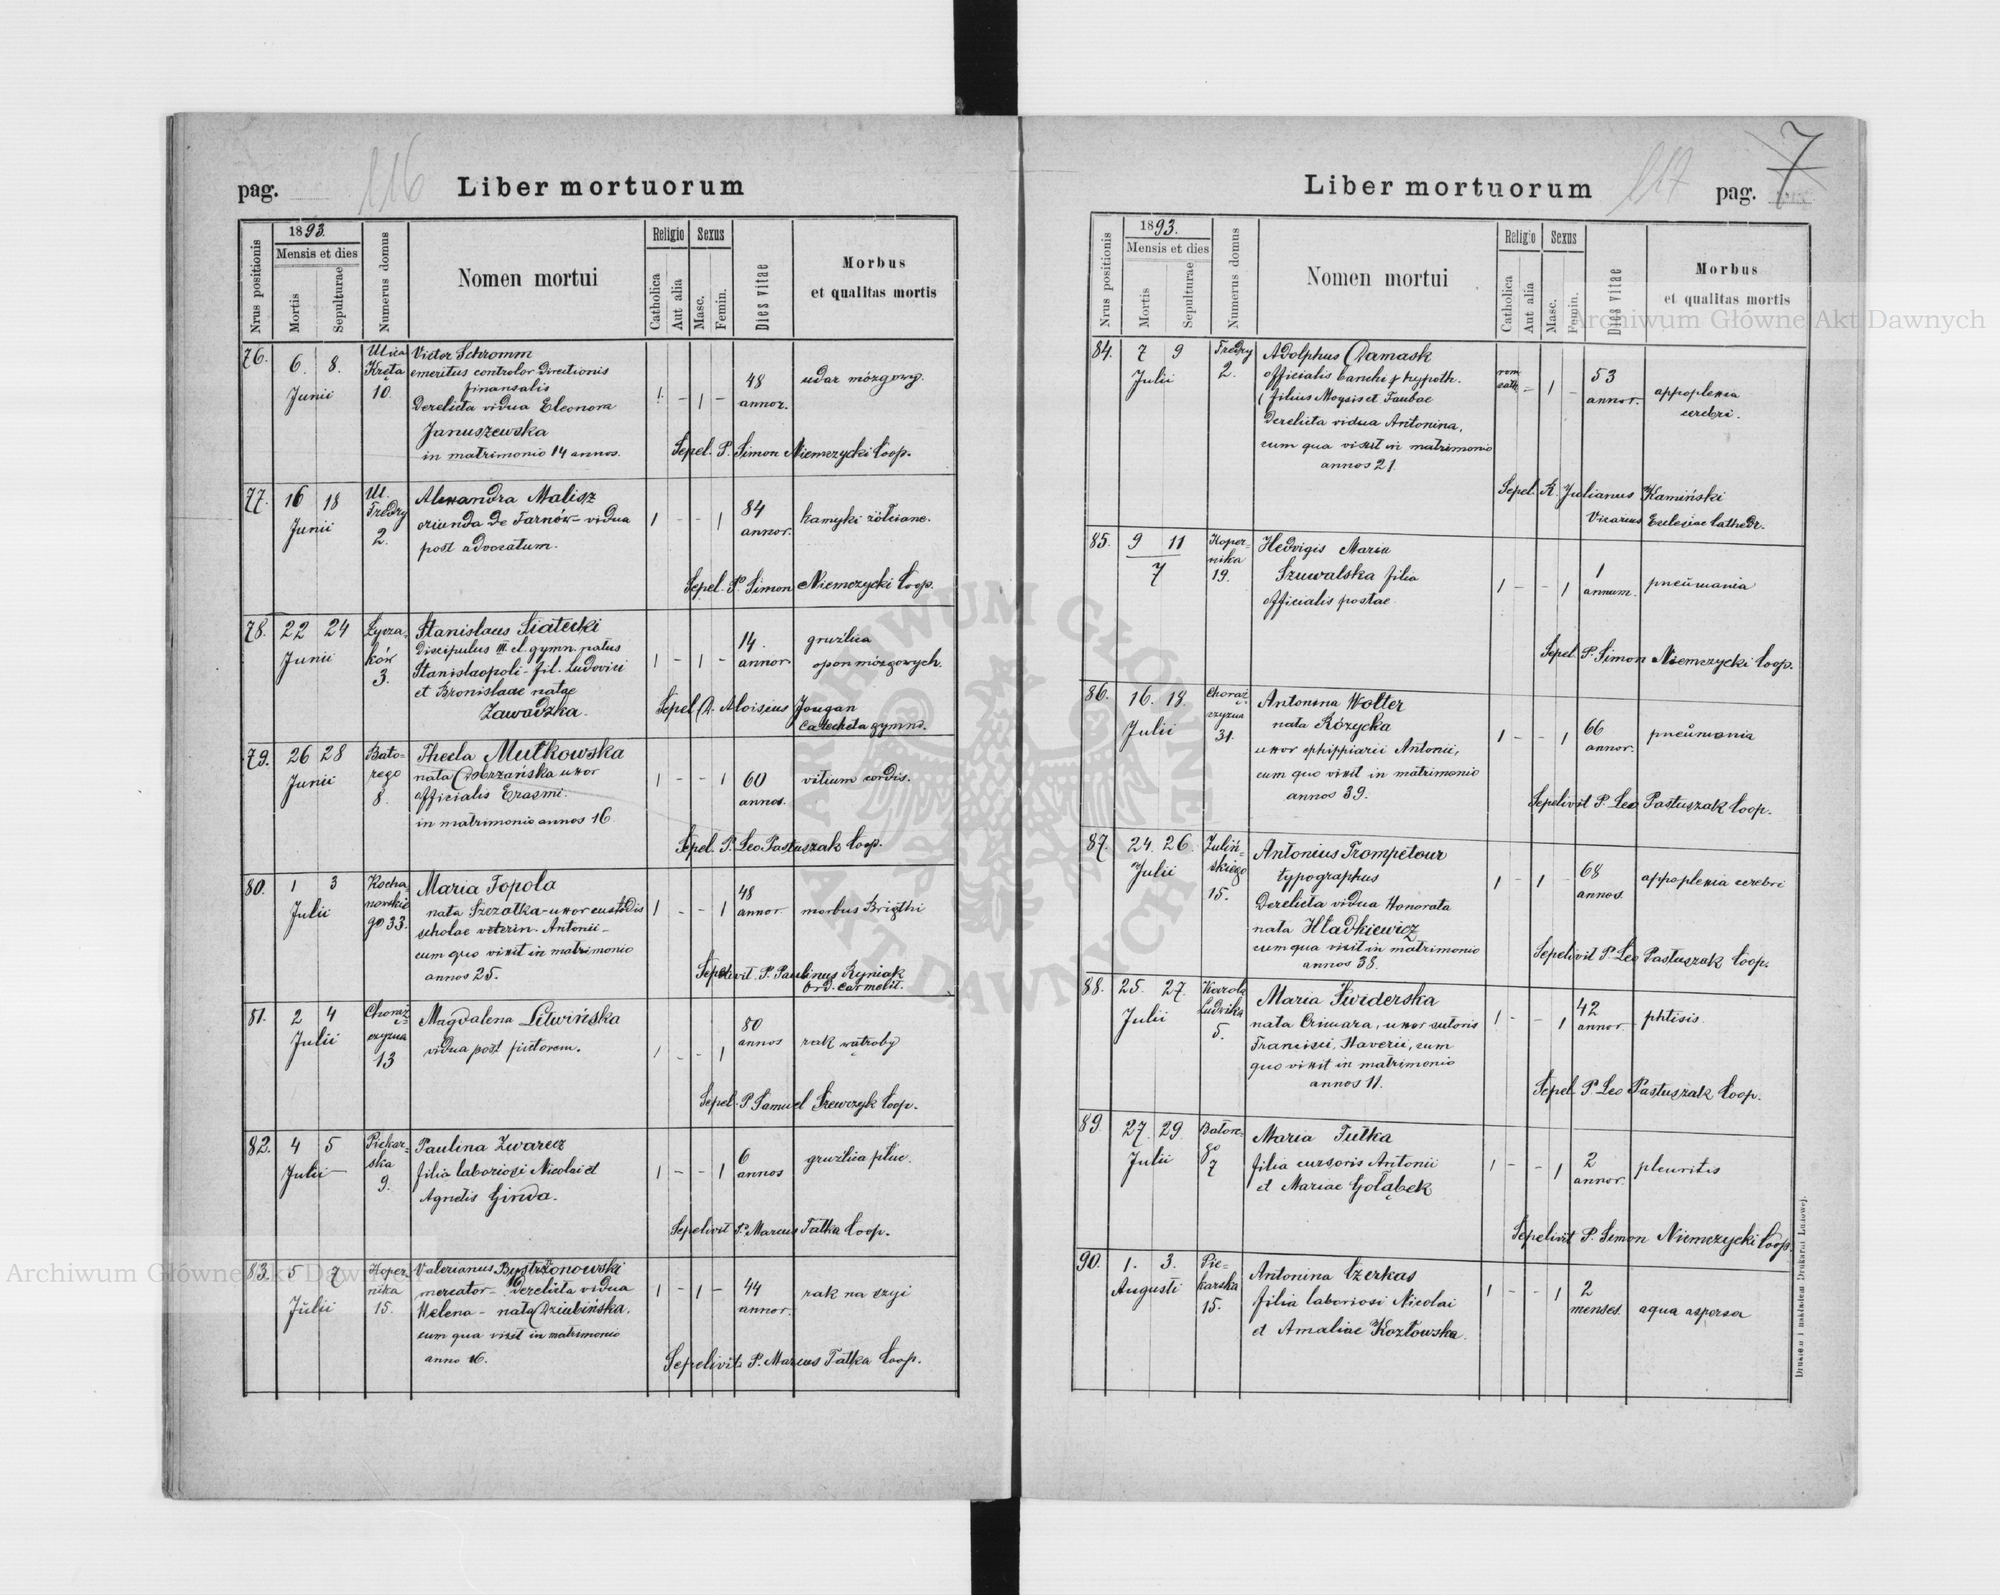 pag.
116
Liber mortuorum
Nrus positionis
1893.
Mensis et dies
Mortis
Sepulturae
Numerus domus
Nomen mortui
Religio
Catholica
Aut alia
Sexus
Masc.
Femin.
Dies vitae
Morbus
et qualitas mortis
76. 6. 8. Ulica Victor Schromm
Junii Kręta emeritus controlor Directionis 48 udar mózgowy.
10. finansalis 1. – 1 – annor.
Derelicta vidua Eleonora
Januszewska
in matrimonio 14 annos. Sepel. P. Simon Niemczycki Coop.
77. 16 18 Ul. Alexandra Malisz 84
Junii Fredry oriunda de Tarnów – vidua 1 – – 1 annor. kamyki żółciane.
2. post advocatum.
Sepel. P. Simon Niemczycki Coop.
78. 22 24 Łycza- Stanislaus Siatecki 14. gruźlica
Junii ków Discipulus III cl. gymn. natus 1 – 1 – annor. opon mózgowych.
3. Stanislaopoli – fil. Ludovici
et Bronislaae natae Sepel. Aloisius Jougan
Zawadzka. Catecheta gymn.
79. 26 28 Bato- Thecla Mutkowska
Junii rego nata Dobrzańska uxor 1 – – 1 60 vitium cordis.
8. officialis Erazmi. annos.
in matrimonio annos 16.
Sepel. P. Leo Pastuszak Coop.
80. 1 3 Kocha- Maria Topola 48
Julii nowskie nata Szczotka – uxor custodis 1 – – 1 annor. morbus Brigthi
go 33. scholae veterin. Antonii –
cum quo vixit in matrimonio
annos 25. Sepelivit. P. Paulinus Ryniak
Ord. Carmelit.
81. 2 4 Chorąż- Magdalena Litwińska 80
Julii czyzna vidua post pictorem. 1 – – 1 annos rak wątroby
13
Sepel. P. Samuel Szewczyk Coop.
82. 4 5 Piekar- Paulina Zwarecz 6
Julii ska filia laboriosi Nicolai et 1 – – 1 annos gruźlica płuc.
9. Agnetis Ginda.
Sepelivit P. Marcus Fatka Coop.
83. 5 7 Koper- Valerianus Bystrzonowski
Julii nika mercator – derelicta vidua 1 – 1 – 44 rak na szyi
15. Helena – nata Dziubińska. annor.
cum qua vixit in matrimonio
anno 16. Sepelivit P. Marcus Fatka Coop.
Liber mortuorum
117
pag.
7
Nrus positionis
1893.
Mensis et dies
Mortis
Sepulturae
Numerus domus
Nomen mortui
Religio
Catholica
Aut alia
Sexus
Masc.
Femin.
Dies vitae
Morbus
et qualitas mortis
84. 7 9 Fredry Adolphus Damask rom.
Julii 2. officialis banchi hypoth. cath. – 1 – 53 appoplexia
(filius Moysis et Taubae annor. cerebri.
Derelicta vidua Antonina,
cum qua vixit in matrimonio
annos 21.
Sepel. X. Julianus Kamiński
Vicarius Eclesiae Cathedr.
85. 9 11 Koper- Hedvigis Maria
7 nika Szuwalska filia 1 – – 1 1 pneumania
19. officialis postae. annum.
Sepel. P. Simon Niemczycki Coop.
86. 16. 18. Chorąż- Antonina Wolter
Julii czyzna nata Różycka 1 – – 1 66 pneumania
31. uxor ephippiarii Antonii, annor.
cum quo vixit in matrimonio
annos 39. Sepelivit P. Leo Pastuszak Coop.
87. 24. 26. Zuliń- Antonius Trompeteur 68
Julii skiego typographus 1 – 1 – annos. appoplexia cerebri
15. Derelicta vidua Honorata
nata Hładkiewicz
cum qua vixit in matrimonio Sepelivit P. Leo Pastuszak Coop.
annos 38.
88. 25. 27. Karola Maria Świderska 42
Julii Ludwika nata , uxor sutoris 1 – – 1 annor. phtisis
5. Francisci, Xaverii, cum
quo vixit in matrimonio
annos 11. Sepel. P. Leo Pastuszak Coop.
89. 27. 29. Batore- Maria Tutka
Julii go filia cursoris Antonii 1 – – 1 2 pleuritis
7 et Mariae Gołąbek annor.
Sepelivit P. Simon Niemczycki Coop.
90. 1. 3. Pie- Antonina Czerkas
Augusti karska filia laboriosi Nicolai 1 – – 1 2
15. et Amaliae Kozłowska. menses. aqua aspersa
Drukiem i nakładem Drukarni Ludowej.
Archiwum Główne Akt Dawnych
Archiwum Główne Akt Dawnych
ARCHIWUM GŁÓWNE
AKT DAWNYCH